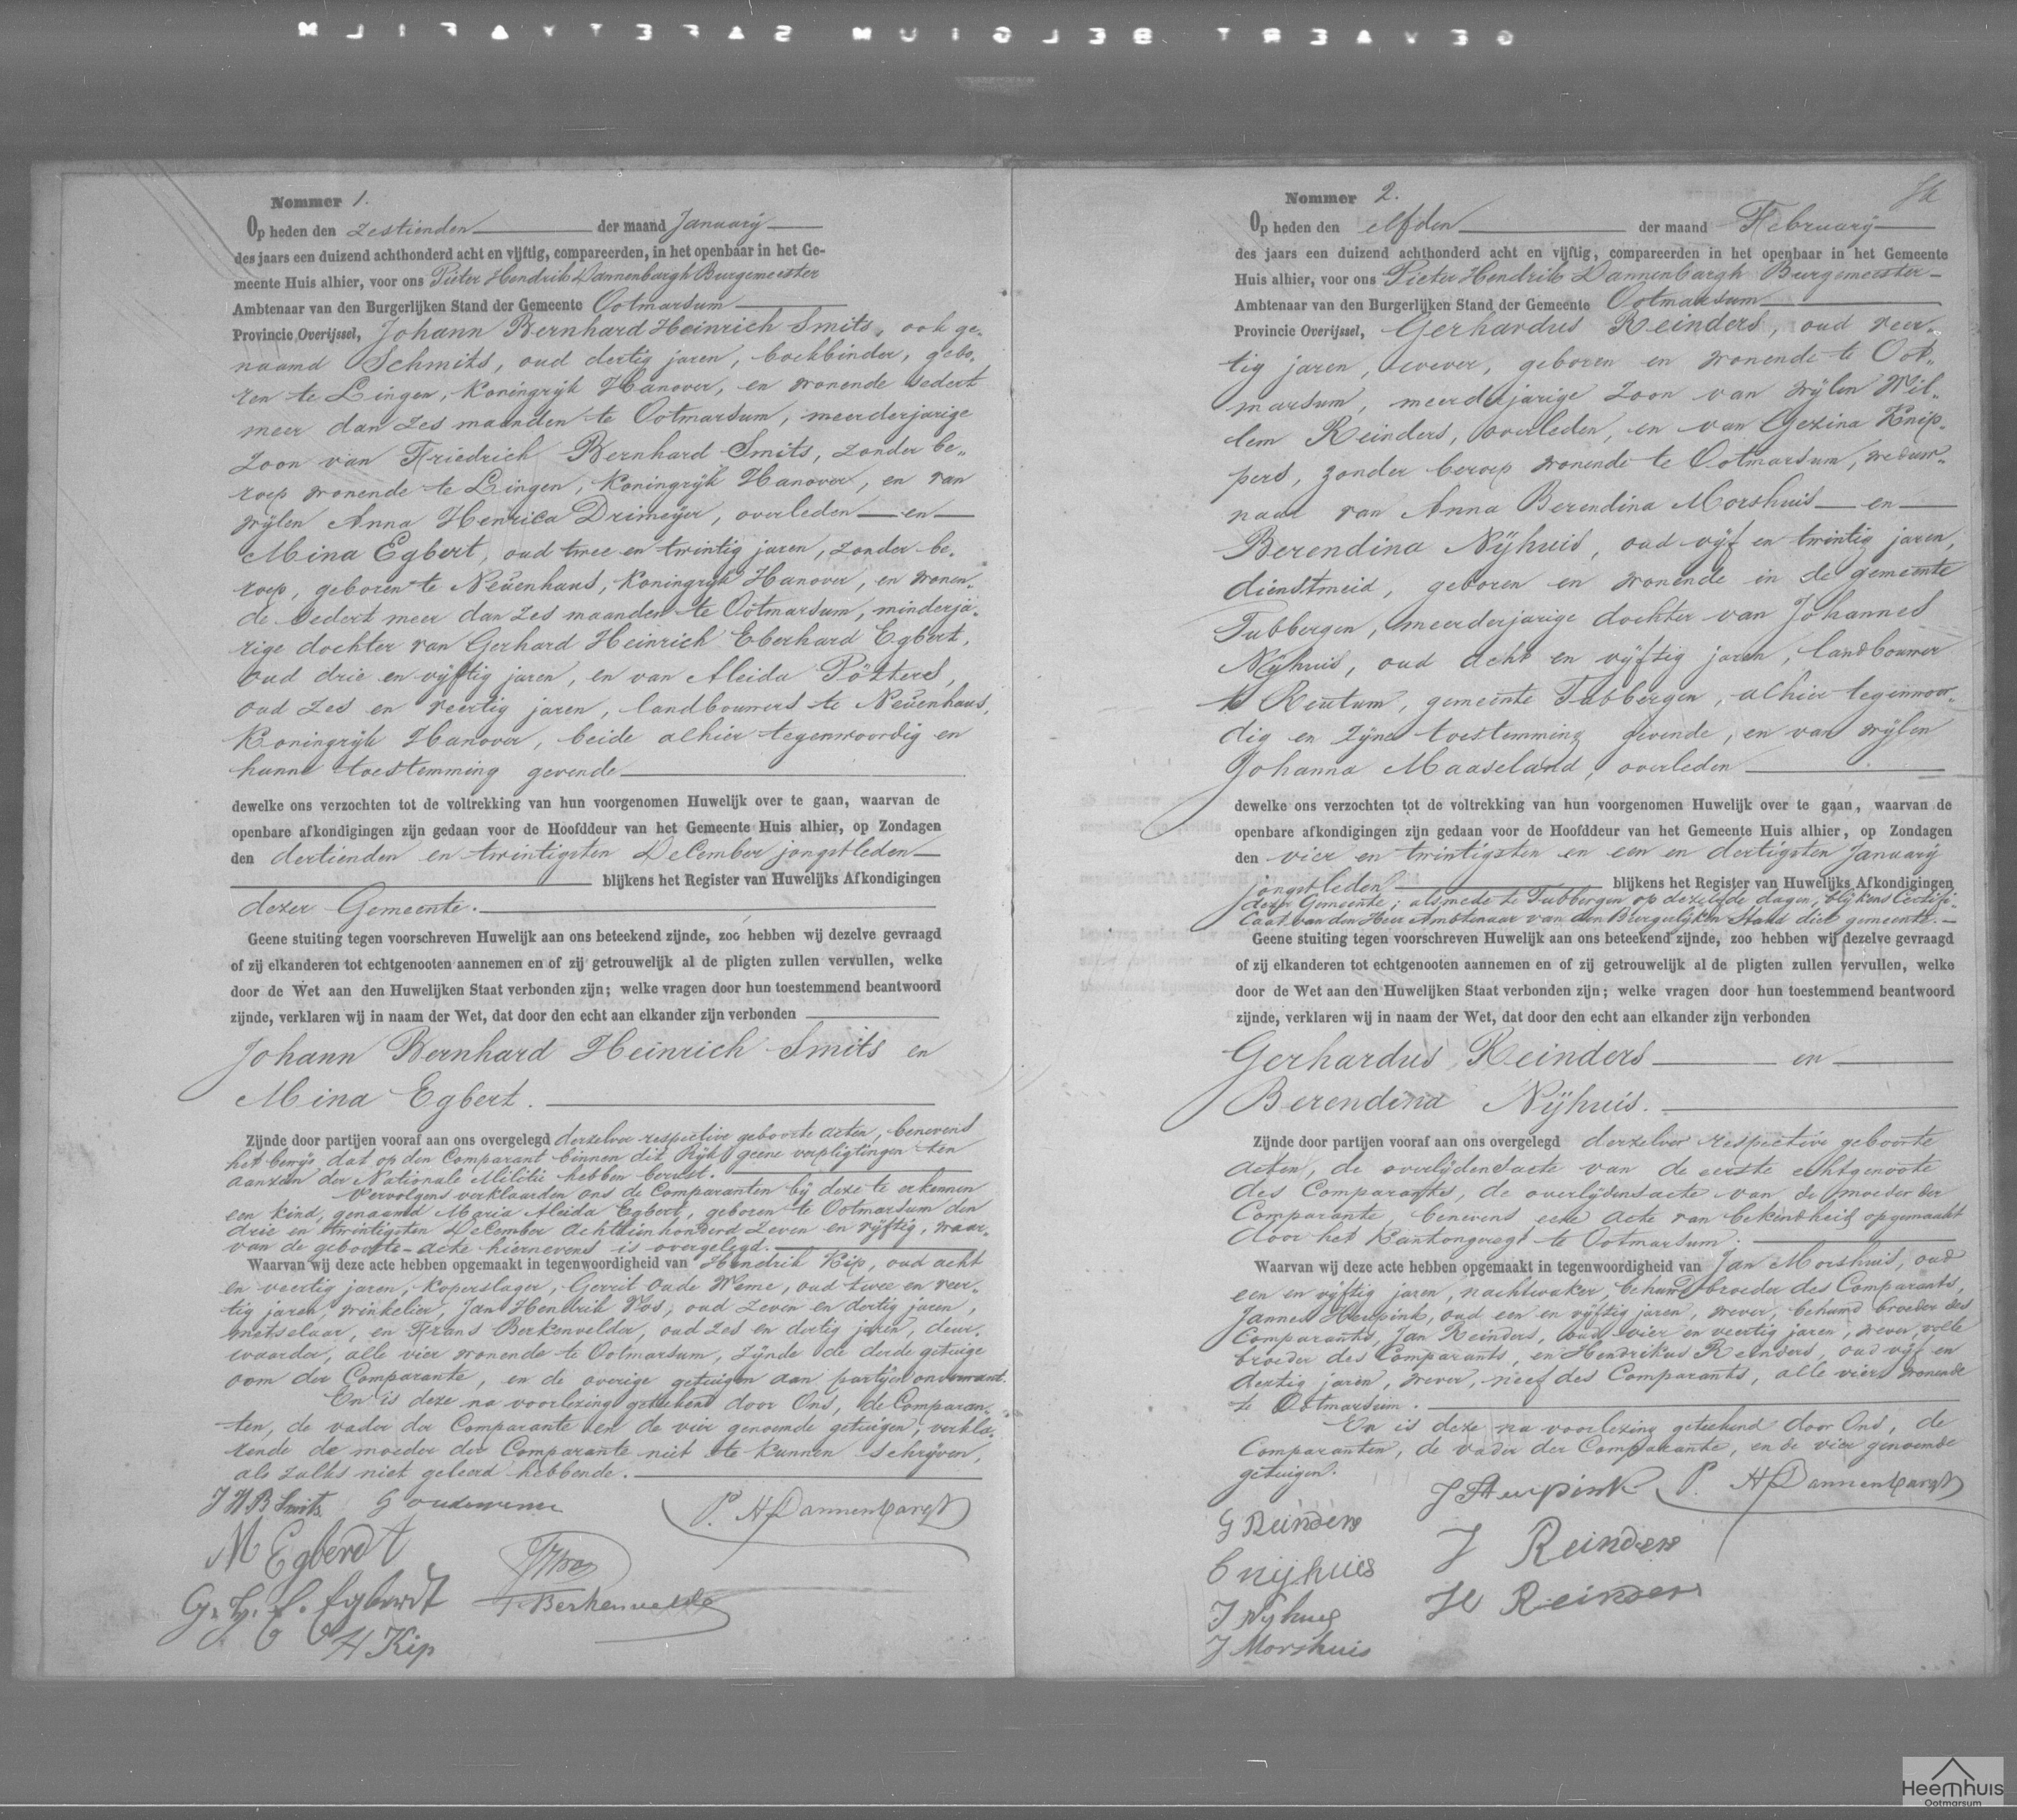 GEVAERT BELGIUM SAFETY FILM
Nommer 1.
Op heden den zestienden der maand January
des jaars een duizend achthonderd acht en vijftig, compareerden, in het openbaar in het Ge-
meente Huis alhier, voor ons Pieter Hendrik Dannenbargh Burgemeester
Ambtenaar van den Burgerlijken Stand der Gemeente Ootmarsum
Provincie Overijssel, Johann Bernhard Heinrich Smits, ook ge-
naamd Schmits, oud dertig jaren, boekbinder, gebo-
ren te Lingen, Koningrijk Hanover, en wonende sedert
meer dan zes maanden te Ootmarsum, meerderjarige
zoon van Friedrich Bernhard Smits, zonder be-
roep wonende te Lingen, Koningrijk Hanover, en van
wijlen Anna Henrica Drimeyer, overleden en
Mina Egbert, oud twee en twintig jaren, zonder be-
roep, geboren te Neuenhaus, Koningrijk Hanover, en wonen-
de sedert meer dan zes maanden te Ootmarsum, minderja-
rige dochter van Gerhard Heinrich Eberhard Egbert,
oud drie en vijftig jaren, en van Aleida Pötters,
oud zes en veertig jaren, landbouwers te Neuenhaus,
Koningrijk Hanover, beide alhier tegenwoordig en
hunne toestemming gevende
dewelke ons verzochten tot de voltrekking van hun voorgenomen Huwelijk over te gaan, waarvan de
openbare afkondigingen zijn gedaan voor de Hoofddeur van het Gemeente Huis alhier, op Zondagen
den dertienden en twintigsten December jongstleden
blijkens het Register van Huwelijks Afkondigingen
dezer Gemeente.
Geene stuiting tegen voorschreven Huwelijk aan ons beteekend zijnde, zoo hebben wij dezelve gevraagd
of zij elkanderen tot echtgenooten aannemen en of zij getrouwelijk al de pligten zullen vervullen, welke
door de Wet aan den Huwelijken Staat verbonden zijn; welke vragen door hun toestemmend beantwoord
zijnde, verklaren wij in naam der Wet, dat door den echt aan elkander zijn verbonden
Johann Bernhard Heinrich Smits en
Mina Egbert.
Zijnde door partijen vooraf aan ons overgelegd derzelver respective geboorte acten, benevens
het bewijs dat op den Comparant binnen dit Rijk geene verpligtingen ten
aanzien der Nationale Militie hebben berust.
Vervolgens verklaarden ons de Comparanten bij deze te erkennen
een kind, genaamd Maria Aleida Egbert, geboren te Ootmarsum den
drie en twintigsten December achttienhonderd zeven en vijftig, waar-
van de geboorte-acte hiernevens is overgelegd.
Waarvan wij deze acte hebben opgemaakt in tegenwoordigheid van Hendrik Kip, oud acht
en veertig jaren, koperslager, Gerrit Oude Weme, oud twee en veer-
tig jaren, winkelier, Jan Hendrik Vos, oud zeven en dertig jaren,
metselaar, en Frans Berkenvelder, oud zes en dertig jaren, deur-
waarder, alle vier wonende te Ootmarsum, zijnde de derde getuige
oom der Comparante, en de overige getuigen aan partijen onverwant.
En is deze na voorlezing geteekend door Ons, de Comparan-
ten, de vader der Comparante en de vier genoemde getuigen, verkla-
rende de moeder der Comparante niet te kunnen schrijven,
als zulks niet geleerd hebbende.
J H B Smits G oudeweme P. H Dannenbargh
M Egberdt
JHVos
G. H. E. Egberdt F. Berkenvelder
H Kip
Nommer 2.
Op heden den elfden der maand February
des jaars een duizend achthonderd acht en vijftig, compareerden in het openbaar in het Gemeente
Huis alhier, voor ons Pieter Hendrik Dannenbargh Burgemeester
Ambtenaar van den Burgerlijken Stand der Gemeente Ootmarsum
Provincie Overijssel, Gerhardus Reinders, oud veer-
tig jaren, wever, geboren en wonende te Oot-
marsum, meerderjarige zoon van wijlen Wil-
lem Reinders, overleden, en van Gezina Knip-
pers, zonder beroep wonende te Ootmarsum, weduw-
naar van Anna Berendina Morshuis en
Berendina Nijhuis, oud vijf en twintig jaren,
dienstmeid, geboren en wonende in de gemeente
Tubbergen, meerderjarige dochter van Johannes
Nijhuis, oud acht en vijftig jaren, landbouwer
te Reutum, gemeente Tubbergen, alhier tegenwoor-
dig en zijne toestemming gevende, en van wijlen
Johanna Maaseland, overleden
dewelke ons verzochten tot de voltrekking van hun voorgenomen Huwelijk over te gaan, waarvan de
openbare afkondigingen zijn gedaan voor de Hoofddeur van het Gemeente Huis alhier, op Zondagen
den vier en twintigsten en een en dertigsten January
jongstleden blijkens het Register van Huwelijks Afkondigingen
dezer Gemeente; alsmede te Tubbergen op dezelfde dagen, blijkens Certifi-
caat van den Heer Ambtenaar van den Burgerlijken Stand dier gemeente.
Geene stuiting tegen voorschreven Huwelijk aan ons beteekend zijnde, zoo hebben wij dezelve gevraagd
of zij elkanderen tot echtgenooten aannemen en of zij getrouwelijk al de pligten zullen vervullen, welke
door de Wet aan den Huwelijken Staat verbonden zijn; welke vragen door hun toestemmend beantwoord
zijnde, verklaren wij in naam der Wet, dat door den echt aan elkander zijn verbonden
Gerhardus Reinders en
Berendina Nijhuis.
Zijnde door partijen vooraf aan ons overgelegd derzelver respective geboorte
acten, de overlijdensacte van de eerste echtgenoote
des Comparants, de overlijdensacte van de moeder der
Comparante, benevens eene acte van bekendheid opgemaakt
door het Kantongeregt te Ootmarsum.
Waarvan wij deze acte hebben opgemaakt in tegenwoordigheid van Jan Morshuis, oud
een en vijftig jaren, nachtwaker, behuwd broeder des Comparants,
Jannes Heupink, oud een en vijftig jaren, wever, behuwd broeder des
Comparants, Jan Reinders, oud vier en veertig jaren, wever, volle
broeder des Comparants, en Hendrikus Reinders, oud vijf en
dertig jaren, wever, neef des Comparants, alle vier wonende
te Ootmarsum.
En is deze na voorlezing geteekend door Ons, de
Comparanten, de vader der Comparante, en de vier genoemde
getuigen.
J Heupink P. H Dannenbargh
G Reinders
J Reinders
B nijhuis
H Reinders
J Nijhuis
J Morshuis
Heemhuis
Ootmarsum